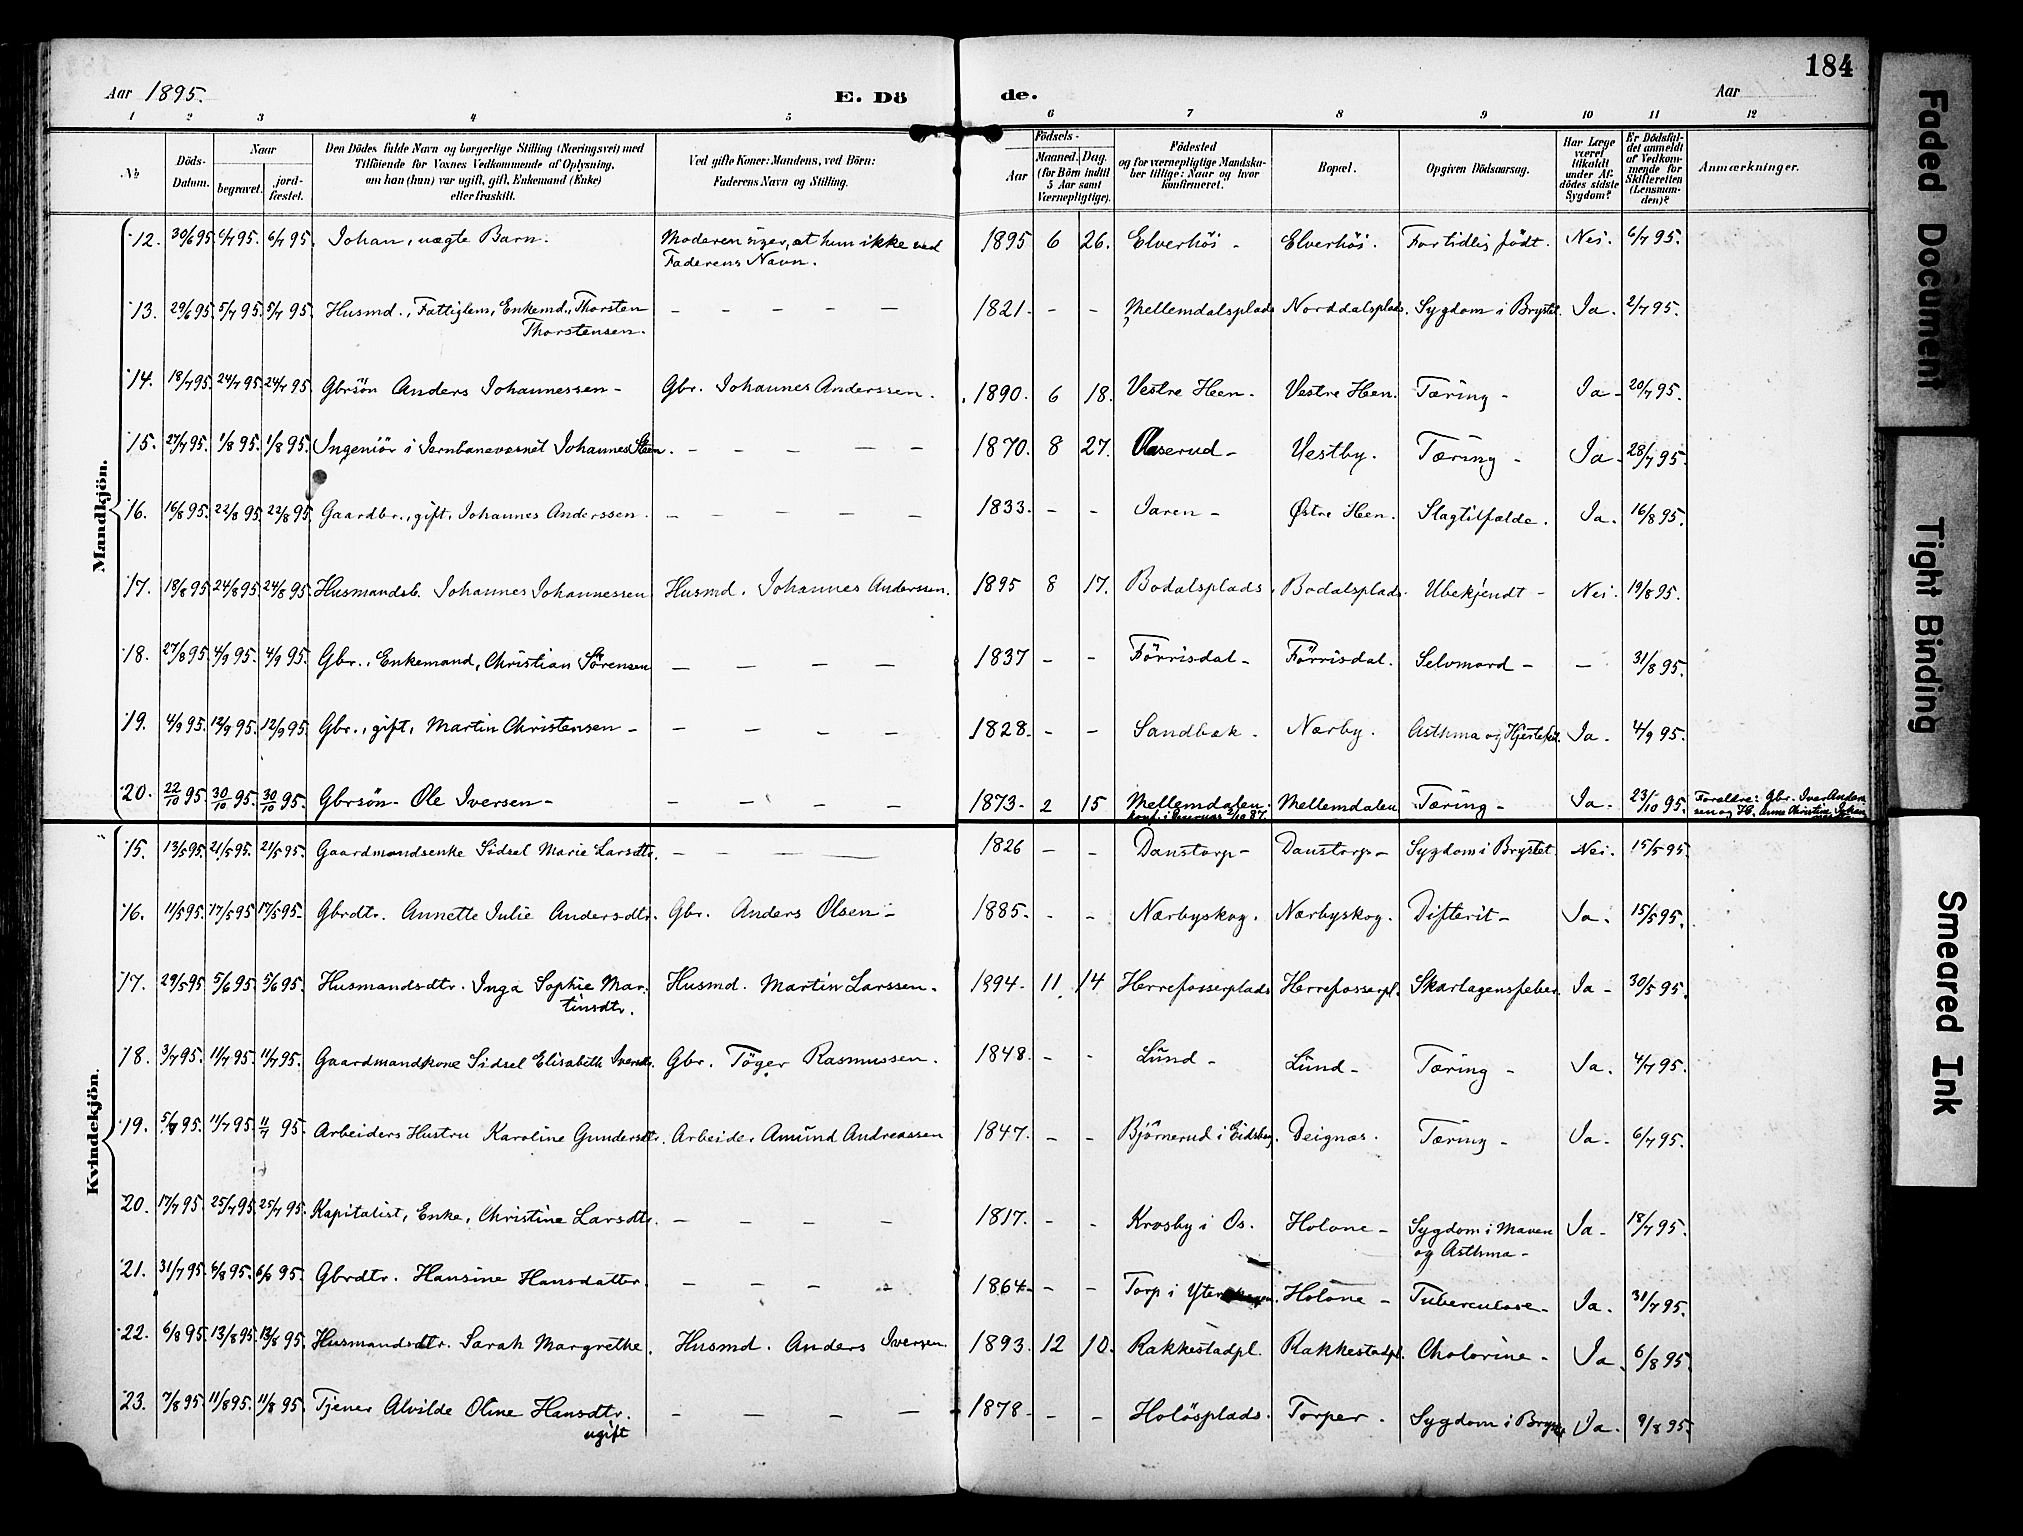 184
Aar 1895.
E. Dö de.
Aar
1 2 3 4 5 6 7 8 9 10 11 12
№
Döds-Datum.
Naar
begravet.
jord-fæstet.
Den Dödes fulde Navn og borgerlige Stilling (Næringsvei) med
Tilföiende for Voxnes Vedkommende af Oplysning,
om han (hun) var ugift, gift, Enkemand (Enke)
eller fraskilt.
Ved gifte Koner: Mandens, ved Börn:
Faderens Navn og Stilling.
Födsels-
Aar
Maaned. Dag.
(for Börn indtil
5 Aar samt
Værnepligtige).
Födested
og for værnepligtige Mandska-
ber tillige: Naar og hvor
konfirmeret.
Bopæl.
Opgiven Dödsaarsag.
Har Læge
været
tilkaldt
under Af-
dödes sidste
Sygdom?
Er Dödsfal-
det anmeldt
af Vedkom-
mende for
Skifteretten
(Lensman-
den)?
Anmærkninger.
Mandkjön.
12. 30/6 95. 6/7 95. 6/7 95. Johan, uægte Barn. Moderen siger, at hun ikke ved 1895 6 26. Elverhöi - Elverhöi. For tidlig födt. Nei. 6/7 95.
Faderens Navn.
13. 29/6 95. 5/7 95. 5/7 95. Husmd., Fattiglem, Enkemd., Thorsten - - - - 1821. - - Mellemdalsplads Norddalsplads. Sygdom i Brystet. Ja. 2/7 95.
Thorstensen.
14. 18/7 95. 24/7 95. 24/7 95. Gbrsön Anders Johannessen - Gbr. Johannes Anderssen. 1890. 6 18. Vestre Heen. Vestre Heen. Tæring - Ja - 20/7 95.
15. 27/7 95. 1/8 95. 1/8 95. Ingeniör i Jernbanevæsnet Johannes Steen. - - - - 1870. 8 27. Aaserud - Vestby. Tæring - Ja - 28/7 95.
16. 16/8 95. 22/8 95. 22/8 95. Gaardbr., gift, Johannes Anderssen. - - - - 1833. - - Jaren - Østre Heen. Slagtilfælde. Ja. 16/8 95.
17. 18/8 95. 24/8 95. 24/8 95. Husmandsb. Johannes Johannessen Husmd. Johannes Anderssen. 1895 8 17. Bodalsplads. Bodalsplads. Ubekjendt - Nei. 19/8 95.
18. 27/8 95. 4/9 95. 4/9 95. Gbr., Enkemand, Christian Sörensen - - - - 1837 - - Förrisdal - Förrisdal. Selvmord - - 31/8 95.
19. 4/9 95. 12/9 95. 12/9 95. Gbr., gift, Martin Christensen - - - - - 1828. - - Sandbæk. Nærby. Asthma og Ja. 4/9 95.
20. 22/10 95. 30/10 95. 30/10 95. Gbrsön - Ole Iversen - - - - - 1873. 2 15 Mellemdalen. Mellemdalen Tæring - Ja. 23/10 95. Forældre: Gbr. Iver Ander
sen og H. Anne Christine
Kvindekjön.
15. 13/5 95. 21/5 95. 21/5 95. Gaardmandsenke Sidsel Marie Larsdtr. - - - 1826 - - Danstorp - Danstorp - Sygdom i Brystet. Nei. 15/5 95.
16. 11/5 95. 17/5 95. 17/5 95. Gbrdtr. Annette Julie Andersdtr. Gbr. Anders Olsen - 1885. - - Nærbyskog. Nærbyskog. Difterit - Ja. 15/5 95.
17. 29/5 95. 5/6 95. 5/6 95. Husmandsdtr. Inga Sophie Mar- Husmd. Martin Larssen. 1894. 11. 14 Herrefosserplads Herrefosserpl. Skarlagensfeber. Ja - 30/5 95.
tinsdtr.
18. 3/7 95. 11/7 95. 11/7 95. Gaardmandkone Sidsel Elisabeth Iversdtr. Gbr. Töger Rasmussen. 1848. - - Lund - Lund - Tæring - Ja. 4/7 95.
19. 5/7 95. 11/7 95. 11/7 95. Arbeiders Hustru Karoline Gundersdtr. Arbeider Amund Andreassen 1847. - - Björnerud i Eidsberg. Deignæs. Tæring - Ja. 6/7 95.
20. 17/7 95. 25/7 95. 25/7 95. Kapitalist, Enke, Christine Larsdtr. - - - - 1817. - - Krosby i Os. Holone - Sygdom i Maven Ja - 18/7 95.
og Asthma -
21. 31/7 95. 6/8 95. 6/8 95. Gbrdtr. Hansine Hansdatter. - - - - 1864. - - Torp i Holone - Tuberculose - Ja. 31/7 95.
22. 6/8 95. 13/8 95. 13/8 95. Husmandsdtr. Sarah Margrethe. Husmd. Anders Iversen. 1893. 12 10. Rakkestadpl. Rakkestadpl. Cholerine - Ja. 6/8 95.
23. 7/8 95. 11/8 95. 11/8 95. Tjener Alvilde Oline Hansdtr. - - - - 1878. - - Holösplads. Torper. Sygdom i Brystet Ja. 9/8 95.
ugift
Faded Document
Tight Binding
Smeared Ink